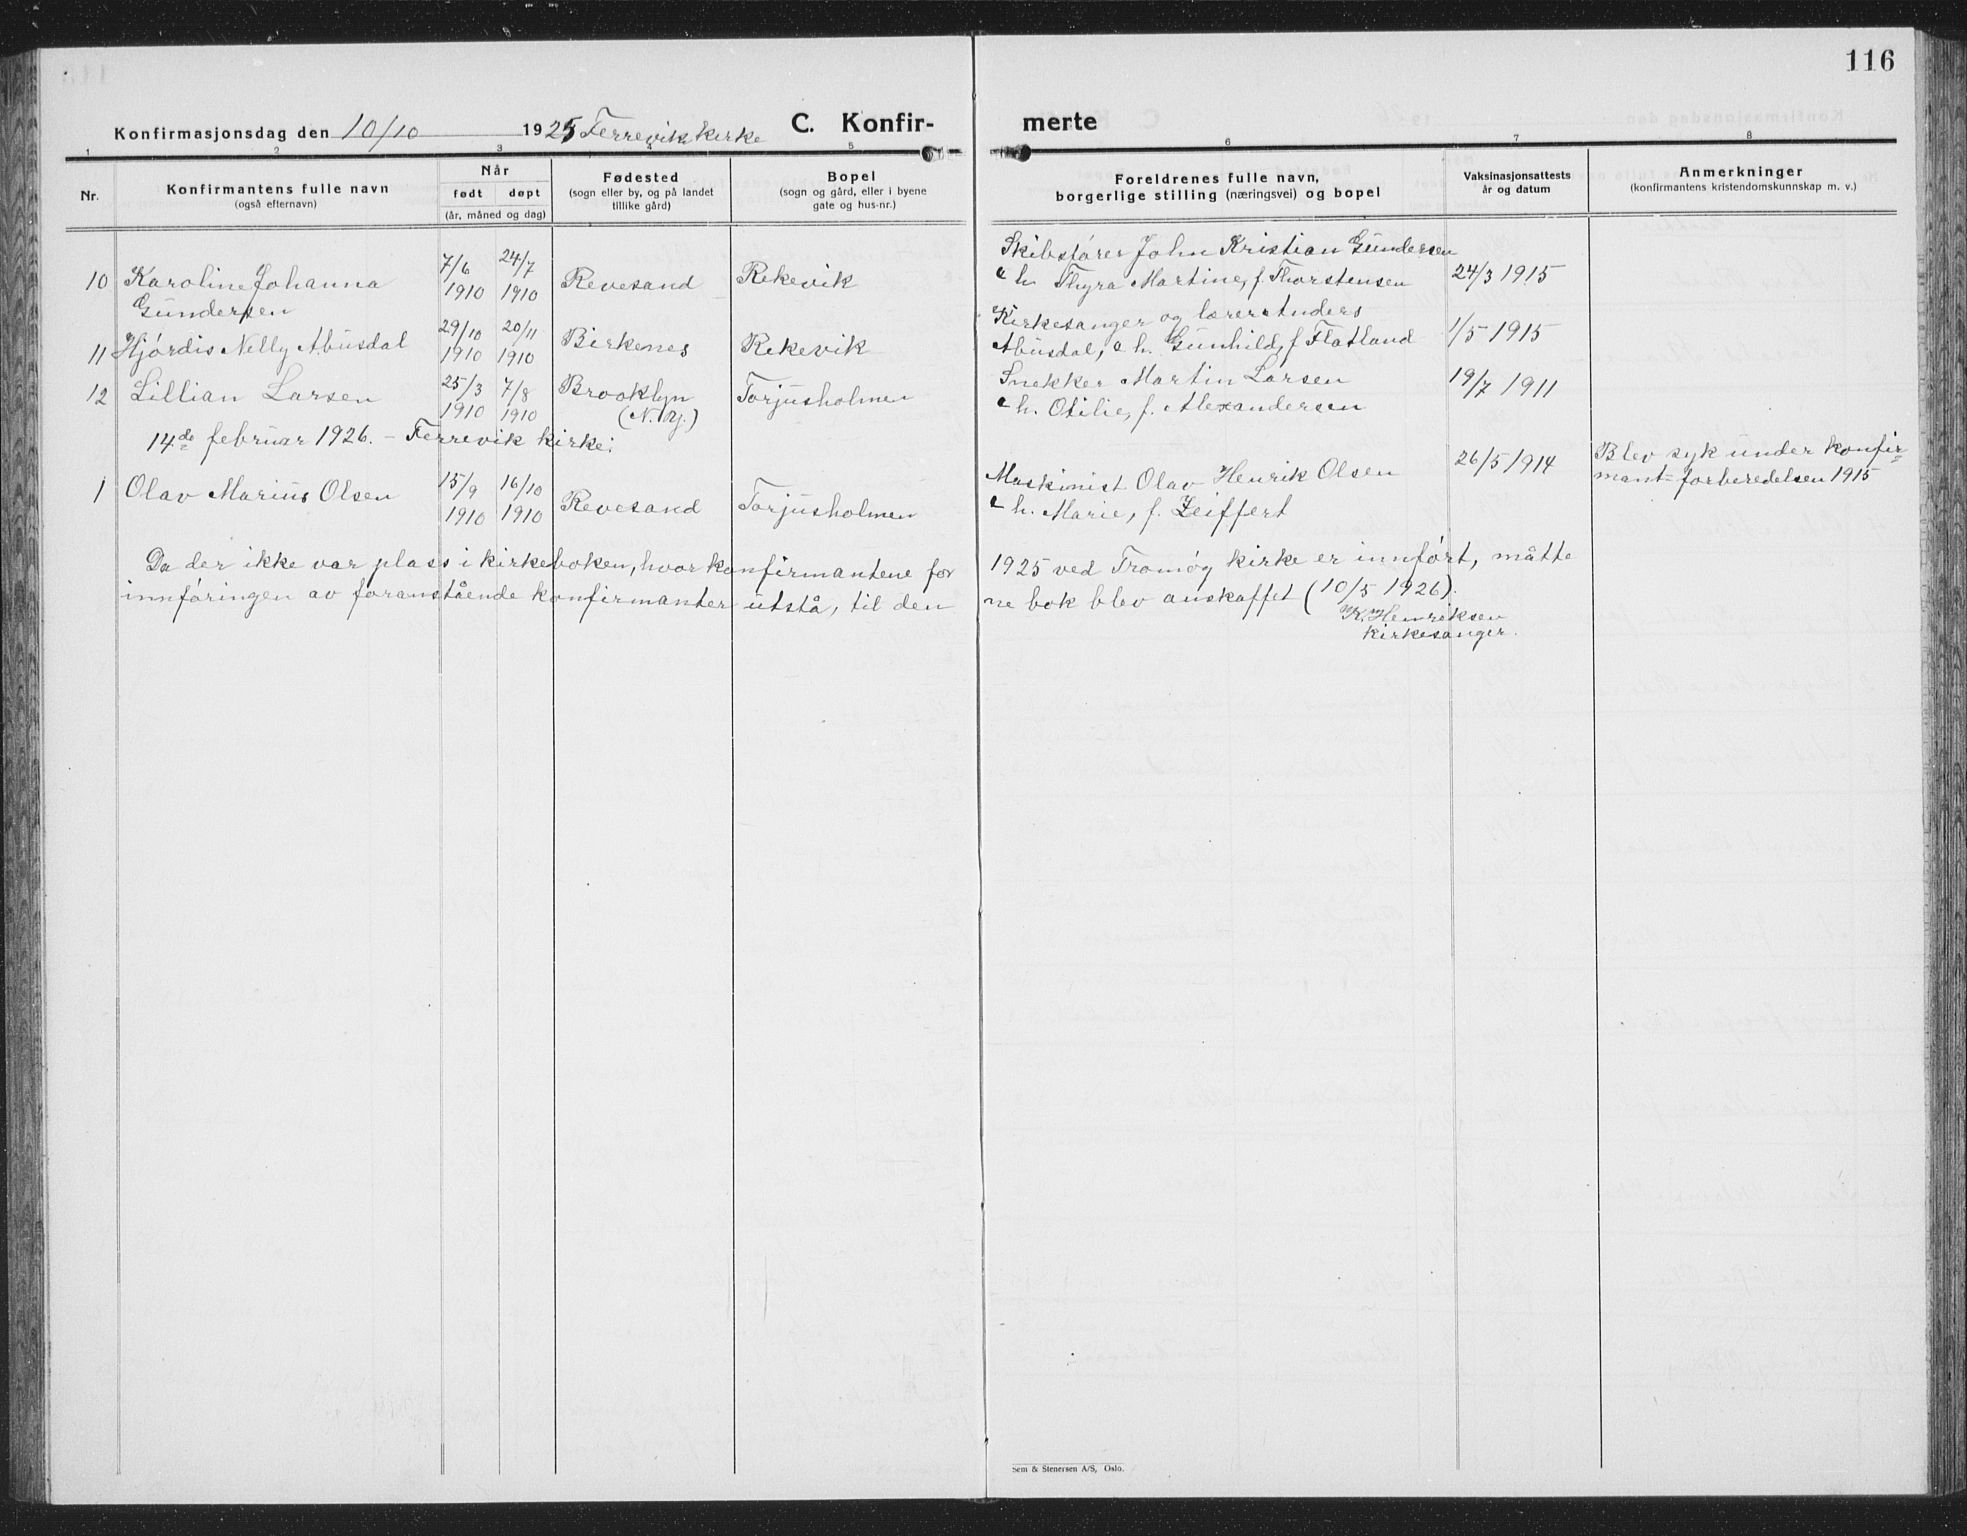 116
Konfirmasjonsdag den 10/10 1925 Færrevik kirke C. Konfir-
merte
1 2 3 4 5 6 7 8
Nr.
Konfirmantens fulle navn
(også efternavn)
Når
født døpt
(år, måned og dag)
Fødested
(sogn eller by, og på landet
tillike gård)
Bopel
(sogn og gård, eller i byene
gate og hus-nr.)
Foreldrenes fulle navn,
borgerlige stilling (næringsvei) og bopel
Vaksinasjonsattests
år og datum
Anmerkninger
(konfirmantens kristendomskunnskap m. v.)
10 Karoline Johanna
Gundersen
7/6 1910
24/7 1910
Revesand
Rekevik
Skibsfører John Kristian Gundersen
& h. Thyra Martine, f. Thorstensen
24/3 1915
11 Hjørdis Nelly Abusdal
29/10 1910
20/11 1910
Birkenes
Rekevik
Kirkesanger og lærer Anders
Abusdal, & h. Gunhild, f. Flatland
1/5 1915
12 Lillian Larsen
25/3 1910
7/8 1910
Brooklyn
(N. Y.)
Torjusholmen
Snekker Martin Larsen
& h. Otilie, f. Alexandersen
19/7 1911
14de februar 1926. – Færrevik kirke:
1 Olav Marius Olsen
15/9 1910
16/10 1910
Revesand
Torjusholmen
Maskinist Olav Henrik Olsen
& h. Marie, f. Zeiffert
26/5 1914
Blev syk under konfir=
mant=forberedelsen 1915
Da der ikke var plass i kirkeboken, hvor konfirmantene for 1925 ved Tromøy kirke er innført, måtte
innføringen av foranstående konfirmanter utstå, til den ne bok blev anskaffet (10/5 1926).
K. Henriksen
kirkesanger.
Sem & Stenersen A/S, Oslo.